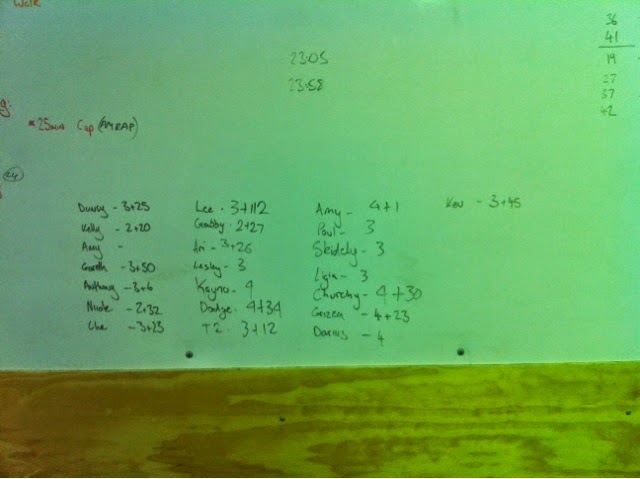 Walk
23:05
23:58
36
41
19
27
37
42
g:
*25min Cap (AMRAP)
24
Danny - 3+25
Kelly - 2+20
Amy -
Gareth - 3+50
Anthony - 3+6
Nicole - 2+32
Che - 3+23
Lee - 3+112
2+27
Ari - 3+26
Lesley - 3
Kayno - 4
Dodge - 4+34
T2 - 3+12
Amy - 4+1
Paul - 3
Skidely - 3
Ligia - 3
Churchy - 4+30
- 4+23
Darius - 4
Kev - 3+45